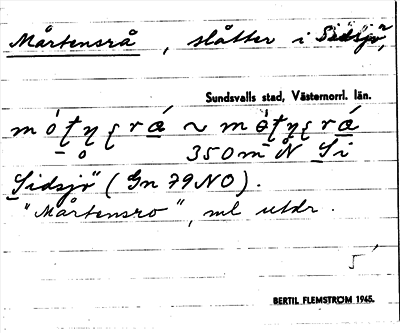 Mårtensrå, slåtter i Sidsjö,
Sundsvalls stad, Västernorrl. län.
350 m N Si
Sidsjö (Gn 79 NO).
"Mårtensro", ml utdr.
5
BERTIL FLEMSTRÖM 1945.